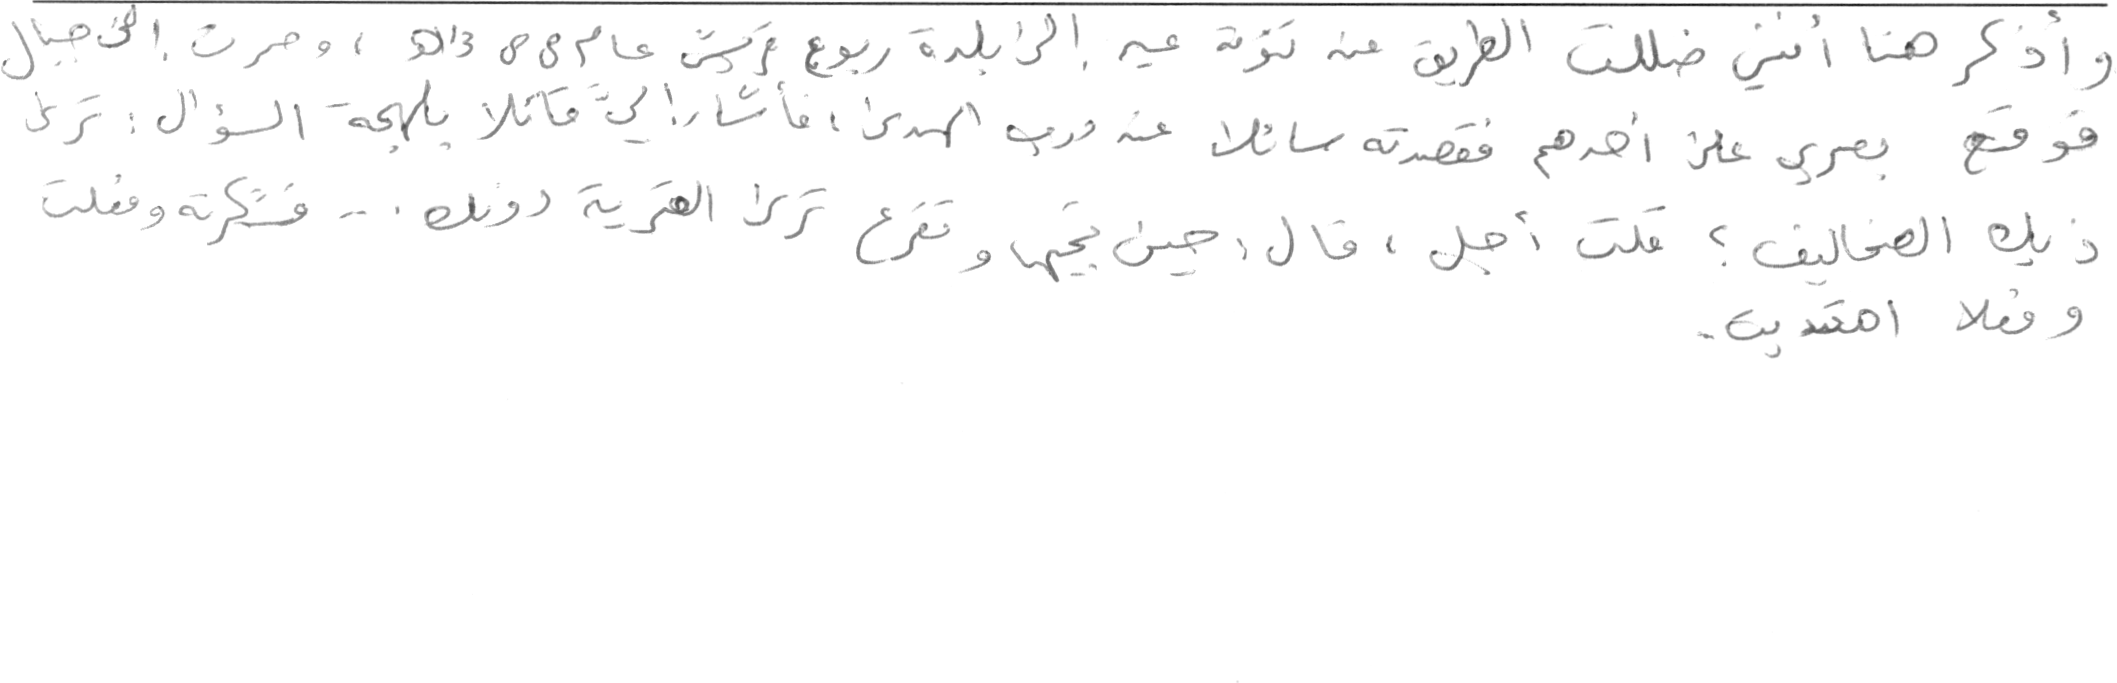 وأذكر هنا أنني ضللت الطريق من توّنة عيه إلى بلدة ربوع قريش عام ١٣٥٥هـ ، وصرت إلى جبال
فوقع بصري على أحدهم فقصدته سائلا عن درب الهدى ، فأشار إليّ قائلا بلهجة السؤال : ترى
ذيك المخاليف ؟ قلت أجل ، قال : حين تجيها وتفرع ترى القرية دونك ... فشكرته وفعلت
وفعلا اهتديت .